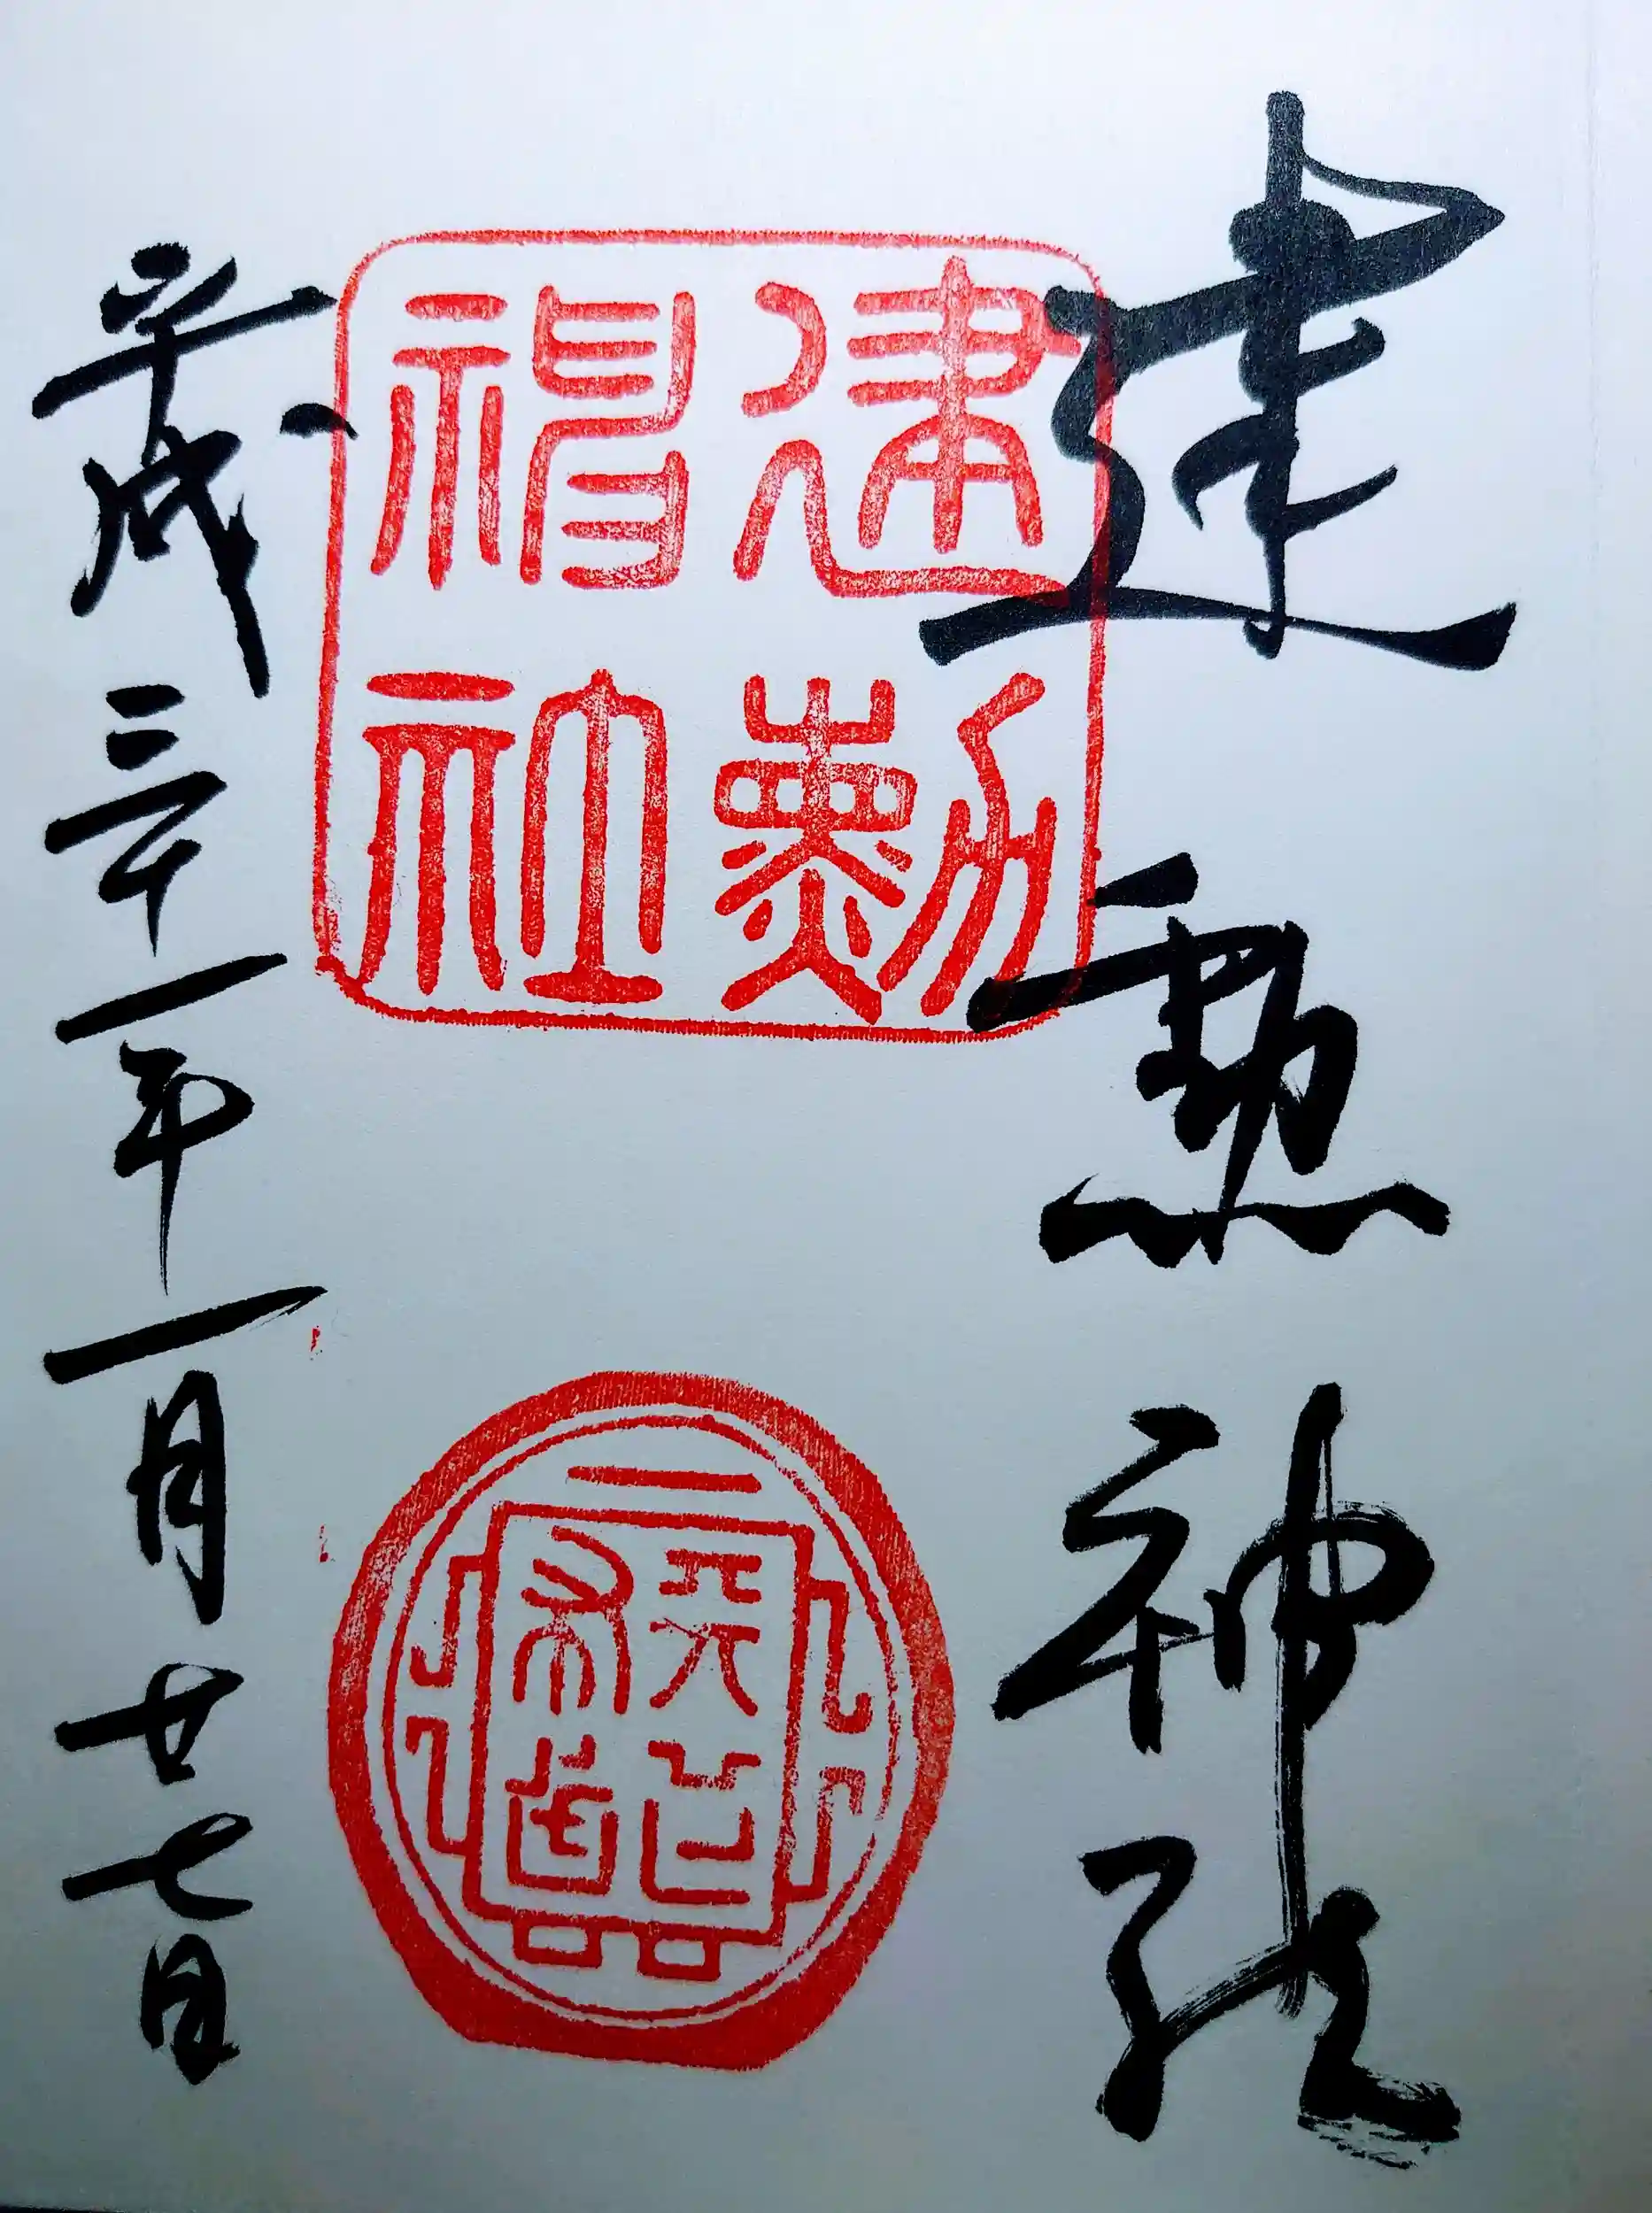 建勲神社
建勳
神社
平成三十一年一月廿七日